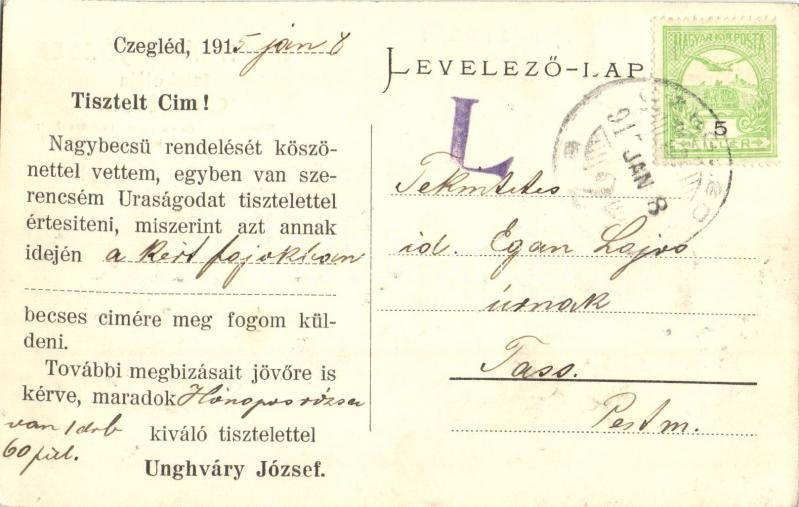 Czegléd, 1915 ján 8
Tisztelt Cim!
Nagybecsü rendelését köszö-
nettel vettem, egyben van sze-
rencsém Uraságodat tisztelettel
értesiteni, miszerint azt annak
idején a kért fajokban
becses cimére meg fogom kül-
deni.
További megbizásait jövőre is
kérve, maradok Hónapos rózsa
van 1 drb
60 fill.
kiváló tisztelettel
Unghváry József.
LEVELEZŐ-LAP
L
MAGYAR KIR. POSTA
5
FILLÉR
915 JAN 8
Tekintetes
id. Egan Lajos
úrnak
Tass.
Pestm.